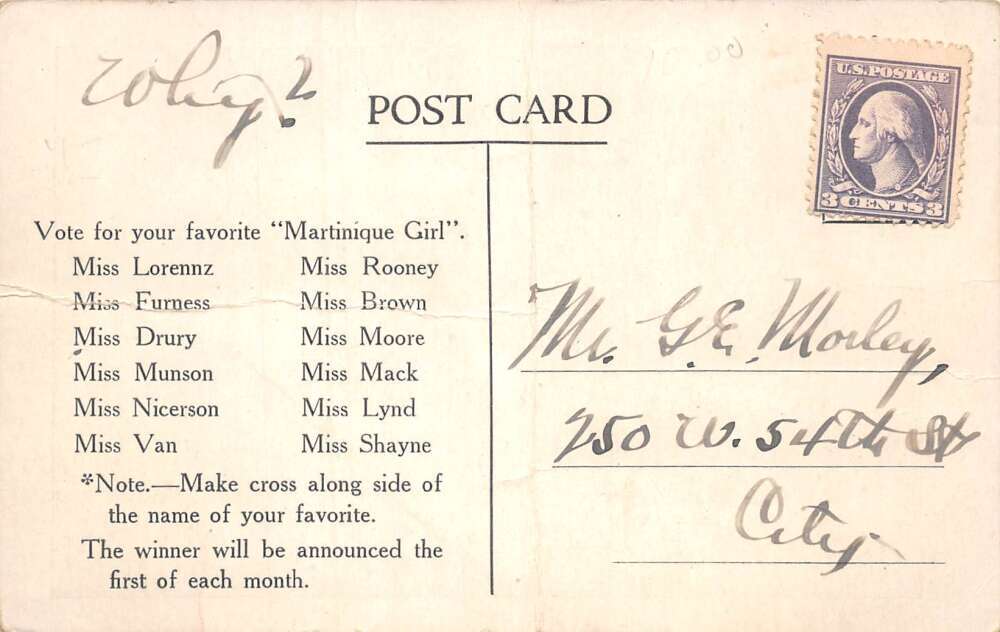 Why?
POST CARD
U.S. POSTAGE
3 CENTS 3
Vote for your favorite "Martinique Girl".
Miss Lorennz Miss Rooney
Miss Furness Miss Brown
Miss Drury Miss Moore
Miss Munson Miss Mack
Miss Nicerson Miss Lynd
Miss Van Miss Shayne
*Note.—Make cross along side of
the name of your favorite.
The winner will be announced the
first of each month.
Mr. G.E. Morley,
250 W. 54th St
City